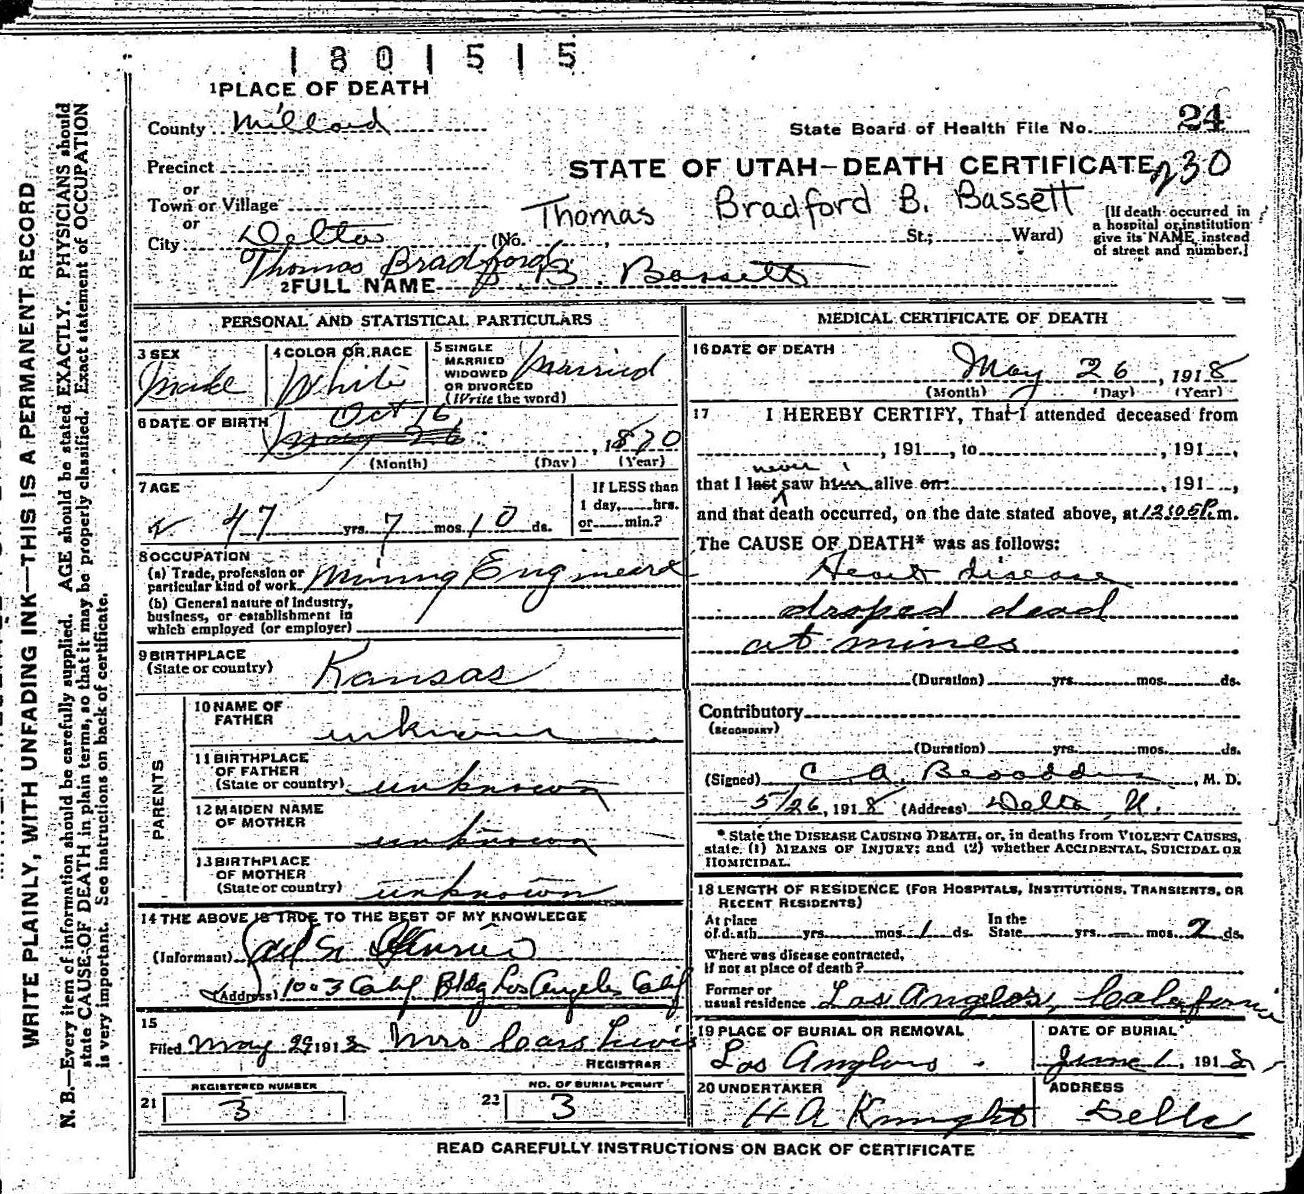 1801515
1 PLACE OF DEATH
County Millard
State Board of Health File No. 24
Precinct
STATE OF UTAH—DEATH CERTIFICATE 230
or
Town or Village
or
Thomas Bradford B. Bassett
City Delta (No. , St.; Ward)
[If death occurred in
a hospital or institution
give its NAME instead
of street and number.]
Thomas Bradford
2 FULL NAME B. Bassett
PERSONAL AND STATISTICAL PARTICULARS
3 SEX
Male
4 COLOR OR RACE
White
5 SINGLE
MARRIED
WIDOWED
OR DIVORCED
(Write the word)
Married
6 DATE OF BIRTH
Oct 16
May 26, 1870
(Month) (Day) (Year)
7 AGE
47 yrs. 7 mos. 10 ds.
If LESS than
1 day, hrs.
or min.?
8 OCCUPATION
(a) Trade, profession or
particular kind of work Mining Engineere
(b) General nature of industry,
business, or establishment in
which employed (or employer)
9 BIRTHPLACE
(State or country) Kansas
PARENTS
10 NAME OF
FATHER unknown
11 BIRTHPLACE
OF FATHER
(State or country) unknown
12 MAIDEN NAME
OF MOTHER
unknown
13 BIRTHPLACE
OF MOTHER
(State or country) unknown
14 THE ABOVE IS TRUE TO THE BEST OF MY KNOWLEDGE
(Informant)
(Address) 1003 Calif Bldg Los Angeles Calif
15
Filed May 29 1918 Mrs Lewis
REGISTRAR
REGISTERED NUMBER
21 3
NO. OF BURIAL PERMIT
22 3
MEDICAL CERTIFICATE OF DEATH
16 DATE OF DEATH
May 26, 1918
(Month) (Day) (Year)
17 I HEREBY CERTIFY, That I attended deceased from
, 191 , to , 191 ,
never
that I last saw him alive on , 191 ,
and that death occurred, on the date stated above, at 12:05 P.m.
The CAUSE OF DEATH* was as follows:
Heart disease
droped dead
at mines
(Duration) yrs. mos. ds.
Contributory
(SECONDARY)
(Duration) yrs. mos. ds.
(Signed) C. A. , M. D.
5/26, 1918 (Address) Delta, U.
*State the DISEASE CAUSING DEATH, or, in deaths from VIOLENT CAUSES,
state (1) MEANS OF INJURY; and (2) whether ACCIDENTAL, SUICIDAL OR
HOMICIDAL.
18 LENGTH OF RESIDENCE (FOR HOSPITALS, INSTITUTIONS, TRANSIENTS, OR
RECENT RESIDENTS)
At place
of death yrs. mos. 1 ds.
In the
State yrs. mos. 2 ds.
Where was disease contracted,
if not at place of death?
Former or
usual residence Los Angelos, California
19 PLACE OF BURIAL OR REMOVAL
Los Anglos
DATE OF BURIAL
June 1, 1918
20 UNDERTAKER
H A Knight
ADDRESS
Delta
READ CAREFULLY INSTRUCTIONS ON BACK OF CERTIFICATE
WRITE PLAINLY, WITH UNFADING INK—THIS IS A PERMANENT RECORD
N. B.—Every item of information should be carefully supplied. AGE should be stated EXACTLY. PHYSICIANS should
state CAUSE OF DEATH in plain terms, so that it may be properly classified. Exact statement of OCCUPATION
is very important. See instructions on back of certificate.